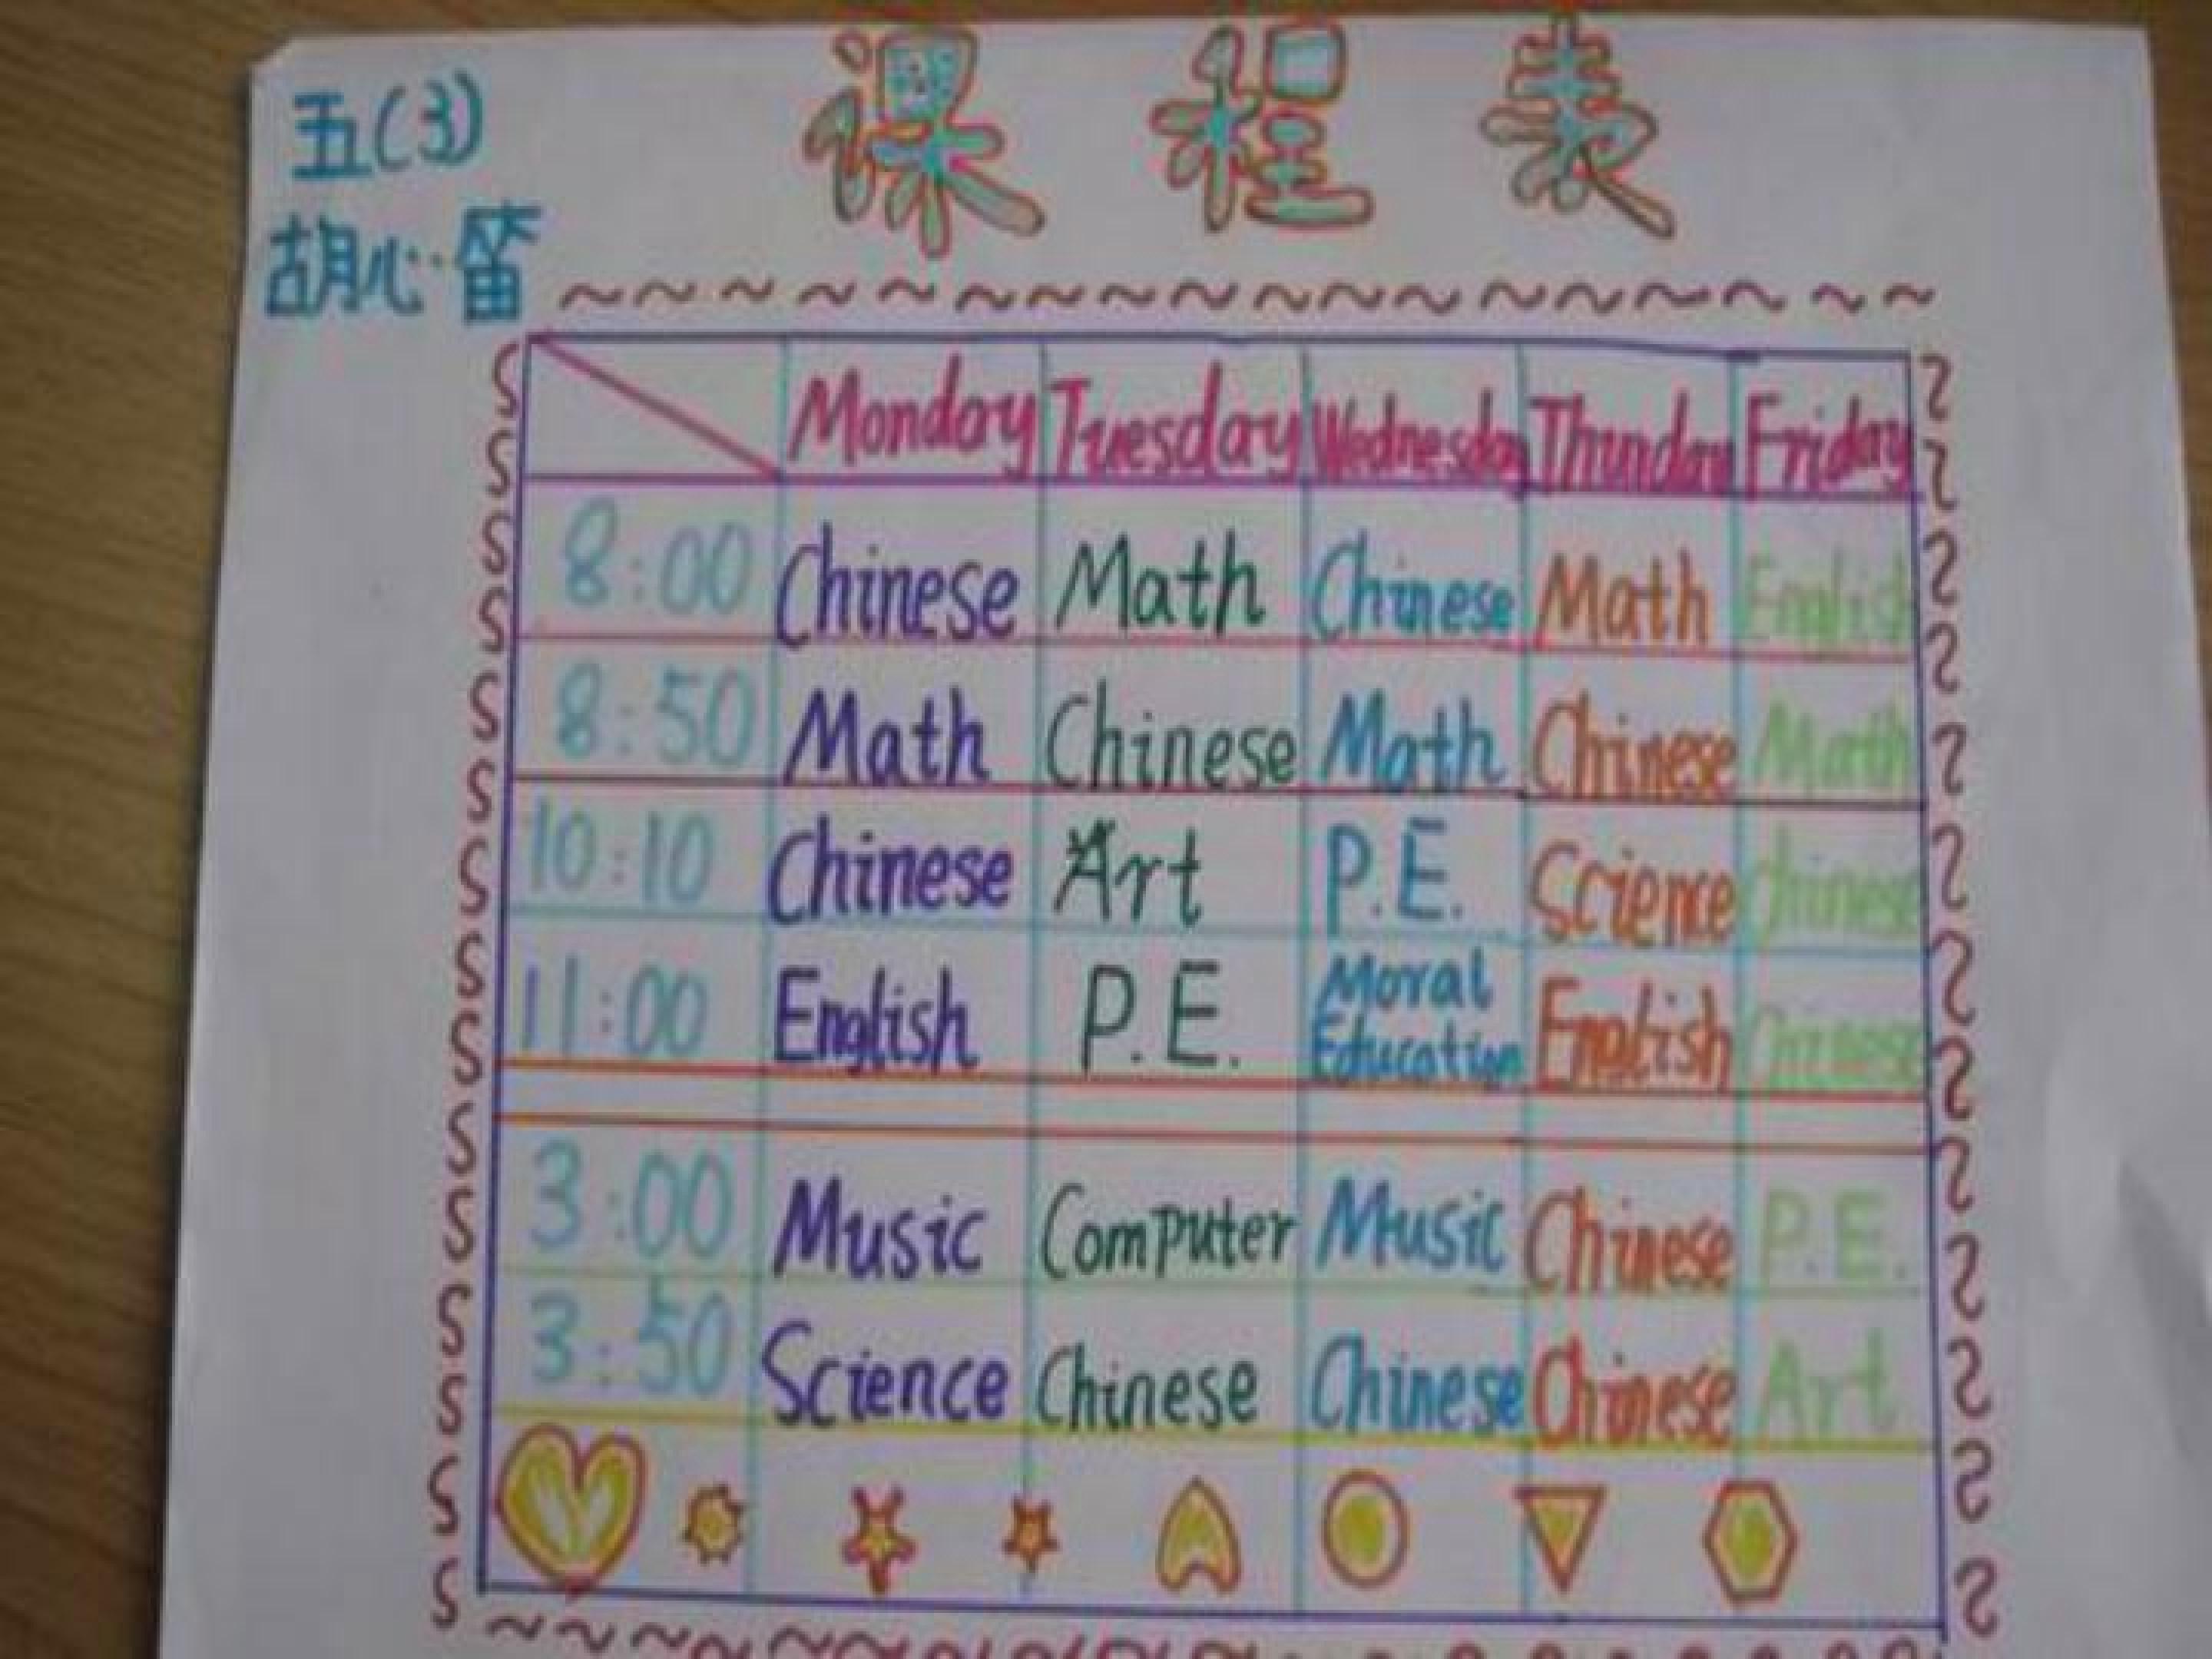 课程表
五(3)
胡心笛
Monday Tuesday Wednesday Thursday Friday
8:00 Chinese Math Chinese Math English
8:50 Math Chinese Math Chinese Math
10:10 Chinese Art P.E. Science Chinese
11:00 English P.E. Moral Education English Chinese
3:00 Music Computer Music Chinese P.E.
3:50 Science Chinese Chinese Chinese Art